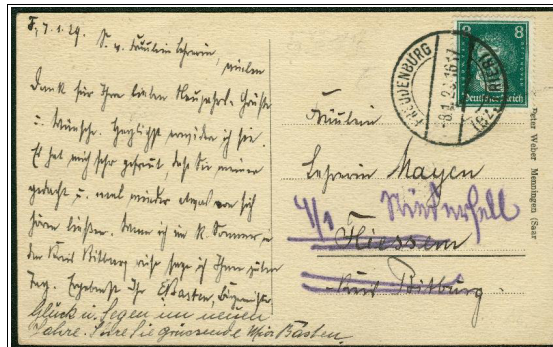 F, 7.1.29.
S. g. Fräulein Lehrerin, vielen
Dank für Ihre lieben Neujahrs-Grüße
u. Wünsche. Herzlichst erwidere ich sie.
Es hat mich sehr gefreut, daß Sie meiner
gedacht u. mal wieder etwas von sich
hören ließen. Wenn ich im K. Sommer in
den Kreis Bitburg sage ich Ihnen guten
Tag. Ergebenst Ihr Basten,
Glück u. Segen im neuen
Jahre. Sie grüssende Basten.
FREUDENBURG
(BZ. TRIER)
-8.1.29.16-17
8
8
Deutsches Reich
Fräulein
Lehrerin Mayen
4/1 Niederfell
Fliessem
Kreis Bitburg.
Peter Weber Menningen (Saar